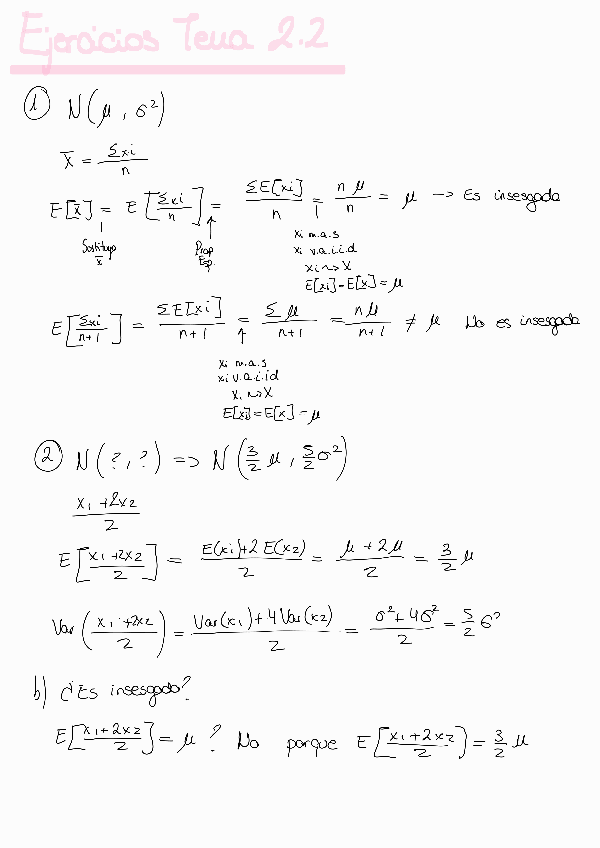 Ejercicios Tema 2.2
① N(μ, σ²)
x̄ = Σxi / n
E[x̄] = E[Σxi / n] = ΣE[xi] / n = nμ / n = μ → Es insesgado
Sustituyo x̄
Prop Esp.
xi m.a.s
xi v.a.i.i.d
xi ~> X
E[xi] = E[x] = μ
E[Σxi / n+1] = ΣE[xi] / n+1 = Σμ / n+1 = nμ / n+1 ≠ μ No es insesgado
xi m.a.s
xi v.a.i.id
xi ~> X
E[xi] = E[x] = μ
② N(?,?) => N(3/2 μ, 5/2 σ²)
x1 + 2x2 / 2
E[x1 + 2x2 / 2] = E(xi)+2 E(x2) / 2 = μ + 2μ / 2 = 3/2 μ
Var(x1 + 2x2 / 2) = Var(x1) + 4Var(x2) / 2 = σ² + 4σ² / 2 = 5/2 σ²
b) ¿Es insesgado?
E[x1 + 2x2 / 2] = μ? No porque E[x1 + 2x2 / 2] = 3/2 μ